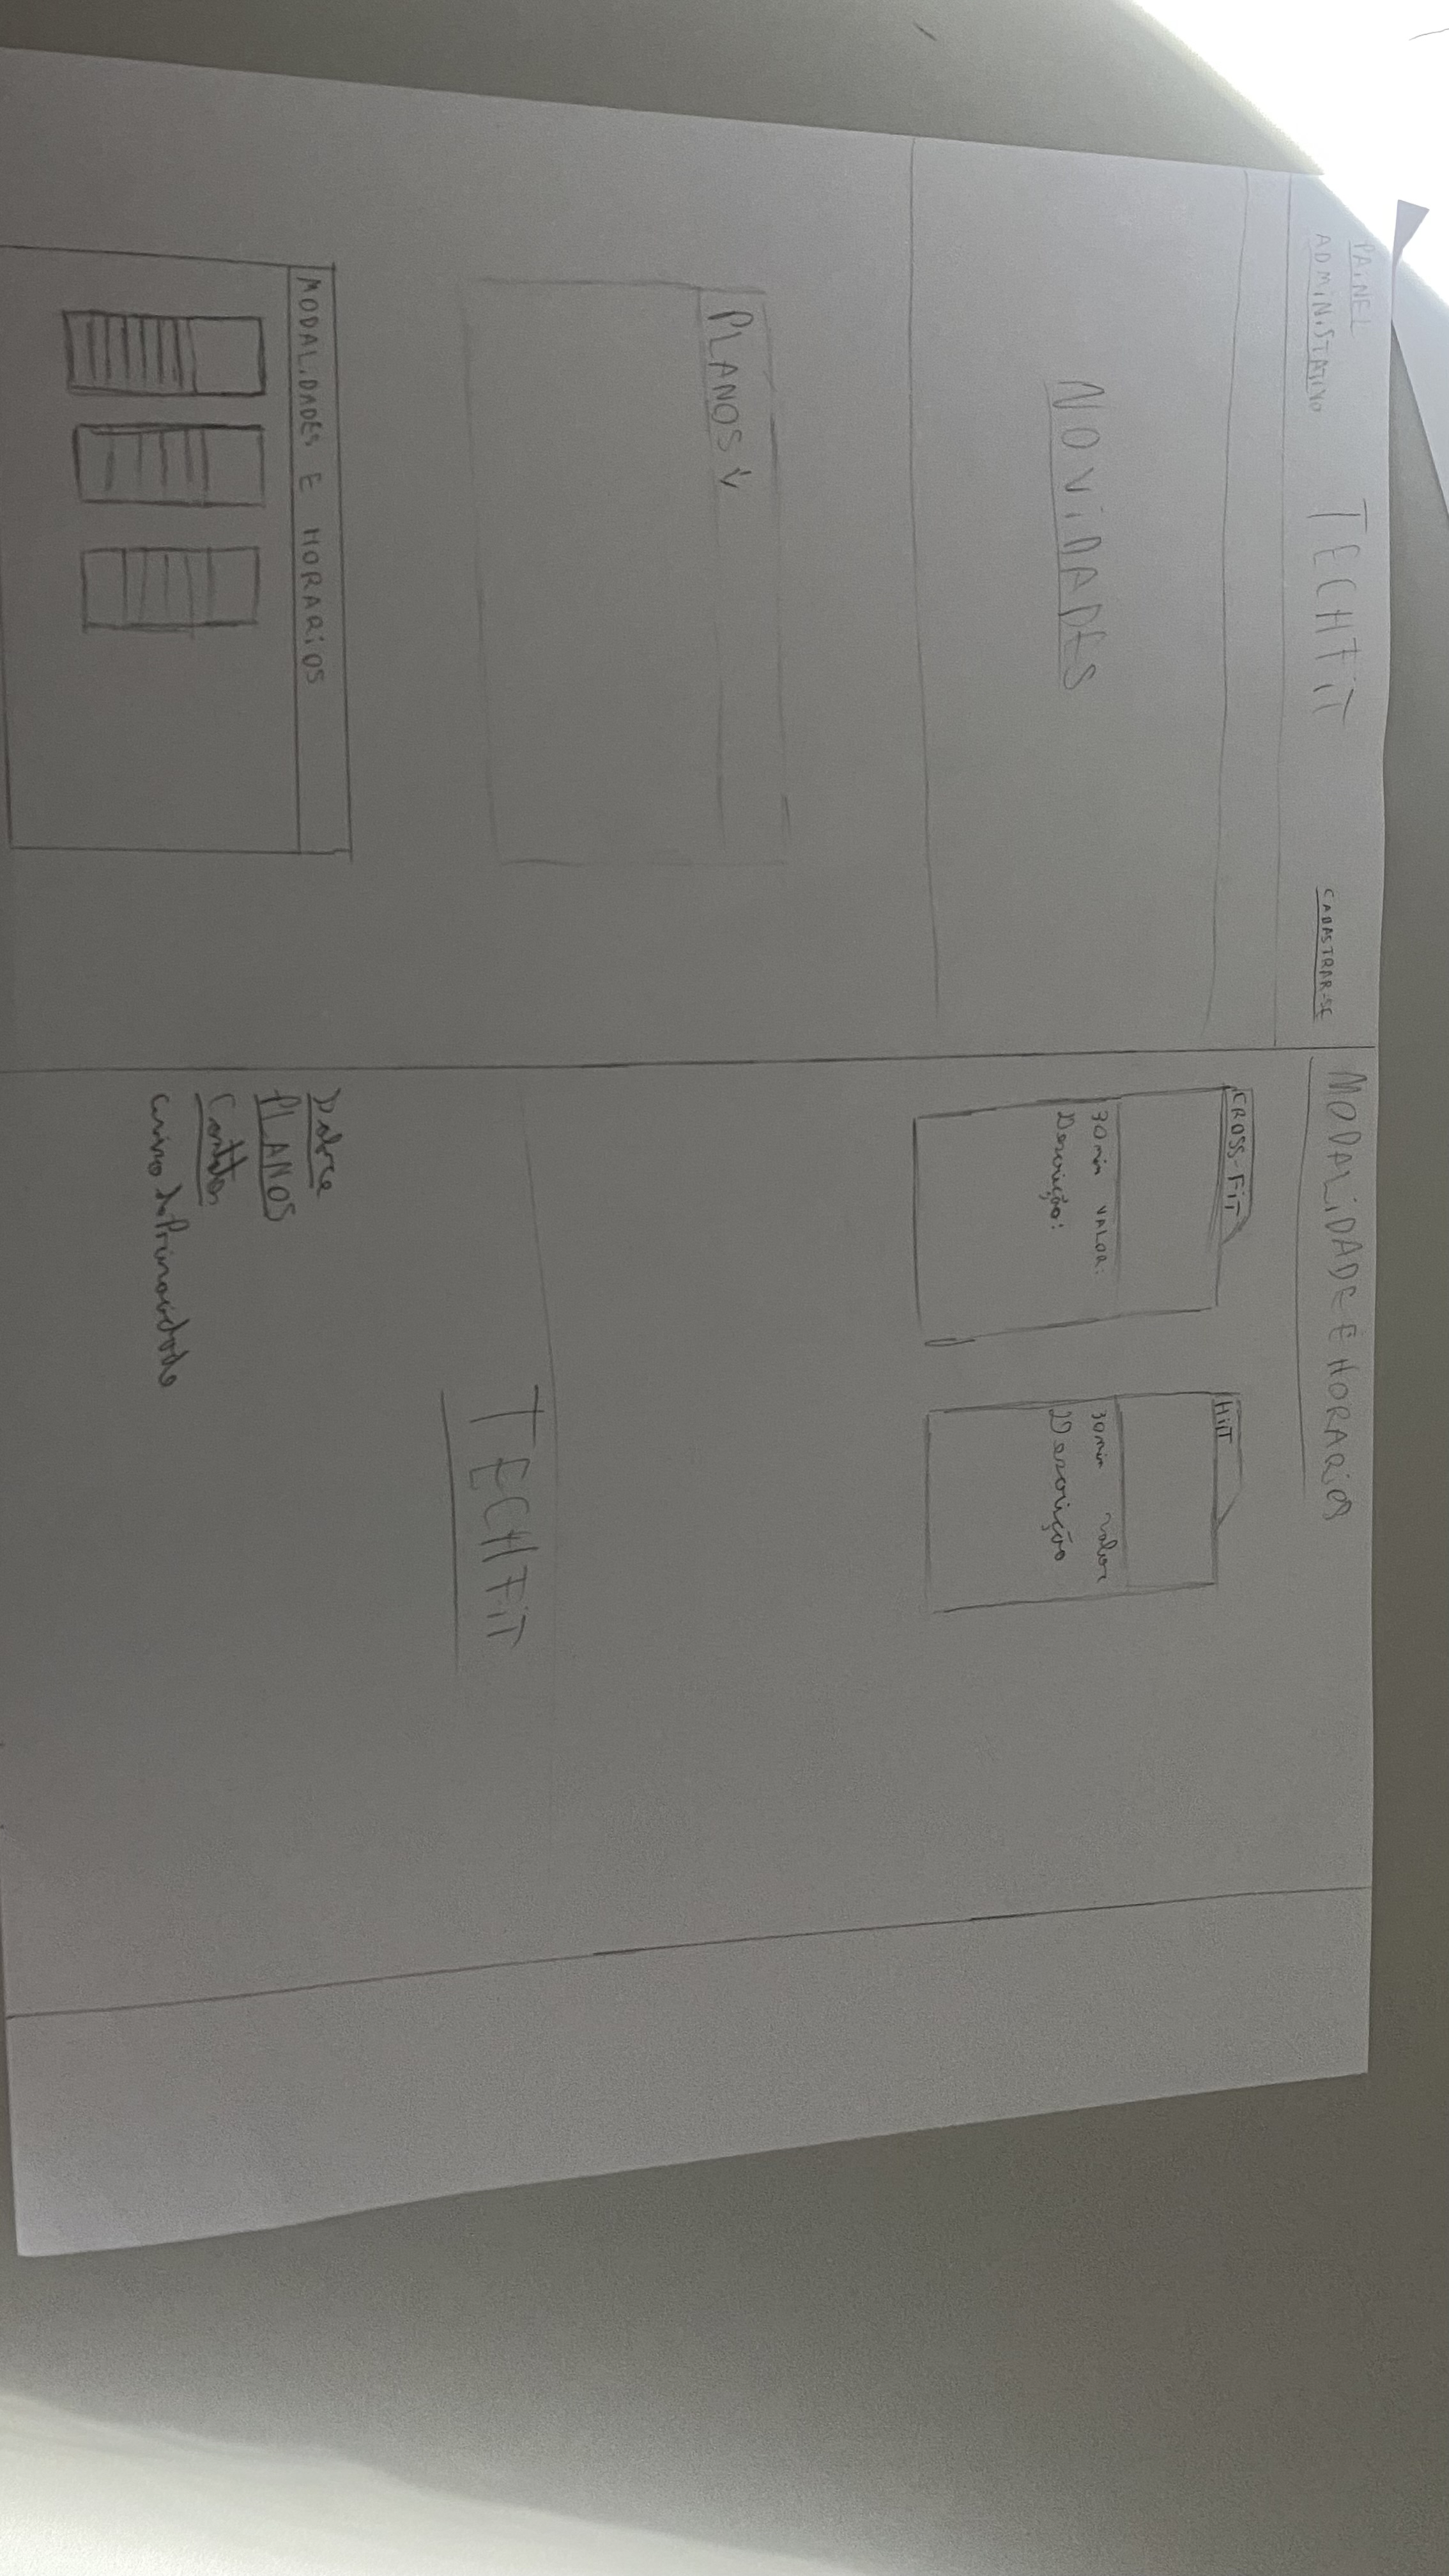 PAINEL
ADMINISTATIVO
TECHFIT
CADASTRAR-SE
NOVIDADES
PLANOS
MODALIDADES E HORARIOS
MODALIDADE E HORARIOS
CROSS-FIT
30 min VALOR:
Descrição:
HIIT
30 min valor
Descrição
TECHFIT
Sobre
PLANOS
Contatos